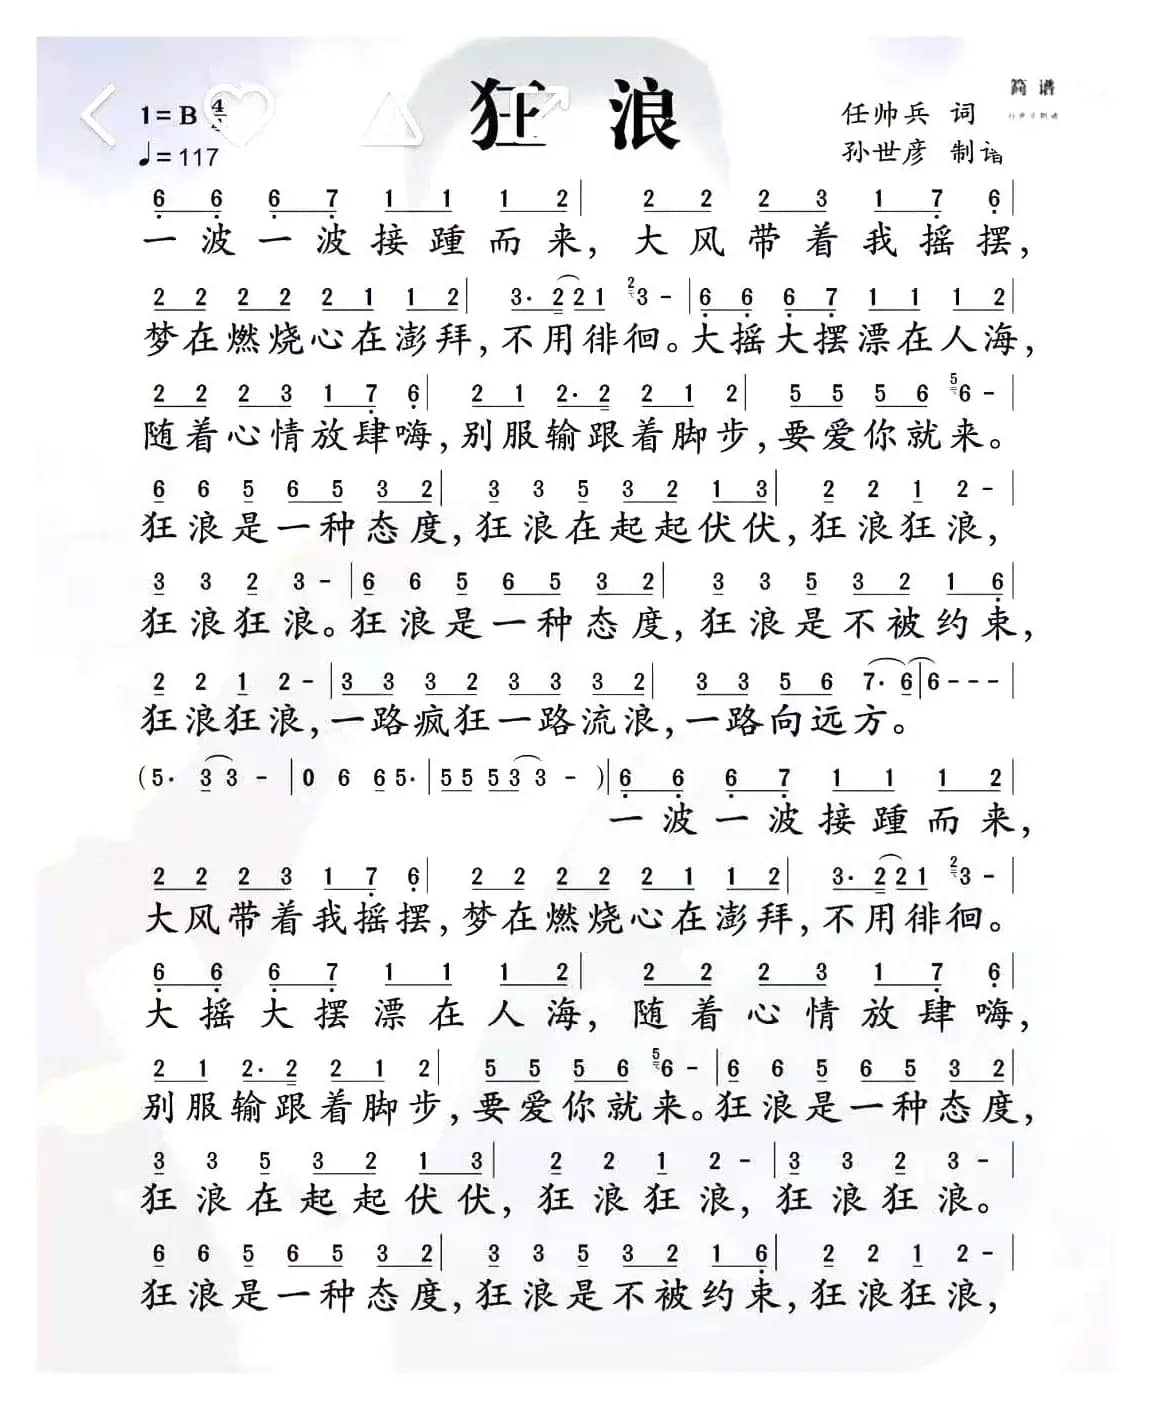 狂浪
简谱
1=B 4/4
任帅兵 词
♩=117
孙世彦 制谱
6 6 6 7 1 1 1 2 | 2 2 2 3 1 7 6 |
一波一波接踵而来，大风带着我摇摆，
2 2 2 2 2 1 1 2 | 3· 2 2 1 2 3 - | 6 6 6 7 1 1 1 2 |
梦在燃烧心在澎拜，不用徘徊。大摇大摆漂在人海，
2 2 2 3 1 7 6 | 2 1 2· 2 2 1 2 | 5 5 5 6 5 6 - |
随着心情放肆嗨，别服输跟着脚步，要爱你就来。
6 6 5 6 5 3 2 | 3 3 5 3 2 1 3 | 2 2 1 2 - |
狂浪是一种态度，狂浪在起起伏伏，狂浪狂浪，
3 3 2 3 - | 6 6 5 6 5 3 2 | 3 3 5 3 2 1 6 |
狂浪狂浪。狂浪是一种态度，狂浪是不被约束，
2 2 1 2 - | 3 3 3 2 3 3 3 2 | 3 3 5 6 7· 6 | 6 - - - |
狂浪狂浪，一路疯狂一路流浪，一路向远方。
(5· 3 3 - | 0 6 6 5· | 5 5 5 3 3 - ) | 6 6 6 7 1 1 1 2 |
一波一波接踵而来，
2 2 2 3 1 7 6 | 2 2 2 2 2 1 1 2 | 3· 2 2 1 2 3 - |
大风带着我摇摆，梦在燃烧心在澎拜，不用徘徊。
6 6 6 7 1 1 1 2 | 2 2 2 3 1 7 6 |
大摇大摆漂在人海，随着心情放肆嗨，
2 1 2· 2 2 1 2 | 5 5 5 6 5 6 - | 6 6 5 6 5 3 2 |
别服输跟着脚步，要爱你就来。狂浪是一种态度，
3 3 5 3 2 1 3 | 2 2 1 2 - | 3 3 2 3 - |
狂浪在起起伏伏，狂浪狂浪，狂浪狂浪。
6 6 5 6 5 3 2 | 3 3 5 3 2 1 6 | 2 2 1 2 - |
狂浪是一种态度，狂浪是不被约束，狂浪狂浪，